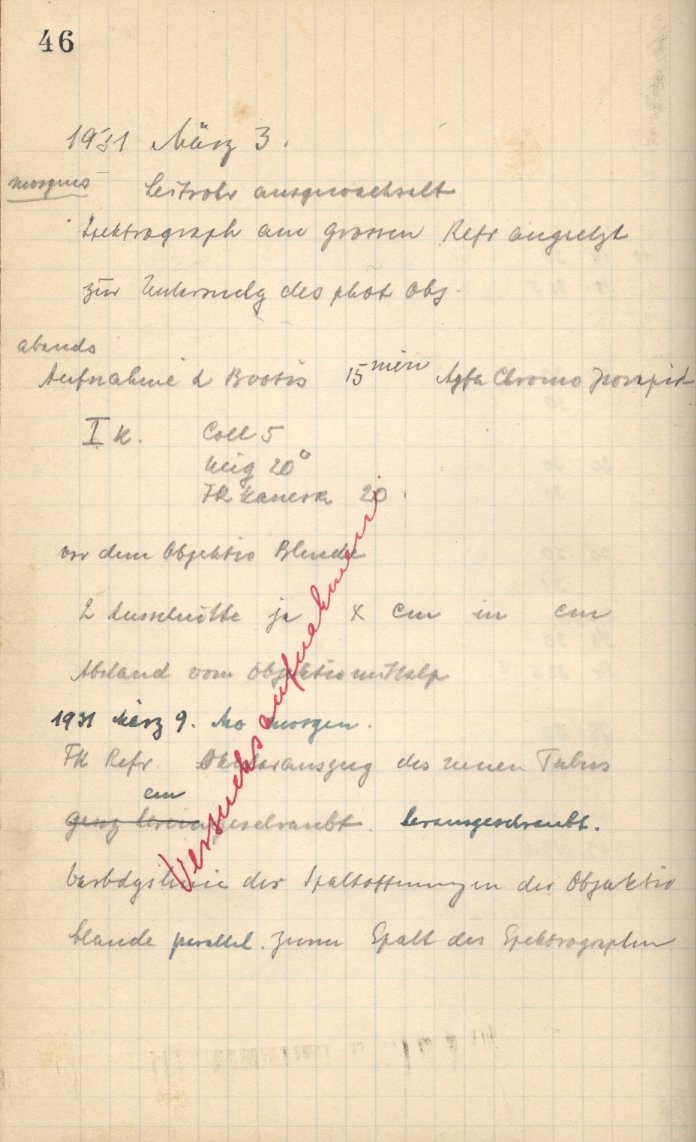 46
1931 März 3.
morgens Leitrohr ausgewechselt
Spektrograph am grossen Refr angesetzt
zur Untersuchg des phot Obj.
abends
Aufnahme α Bootis 15 min Agfa Chromo Isorapid
I K. Coll 5
Neig 20°
FK Kamera 20.
vor dem Objektiv Blende
2 Ausschnitte je x cm in cm
Abstand vom Objektiv
Versuchsaufnahmen!
1931 März 9. Mo morgen.
FK Refr. Okularauszug des neuen Tubus
cm
ganz hereingeschraubt. herausgeschraubt.
Verbdgslinie der Spaltöffnungen der Objektiv
blende parallel zum Spalt des Spektrographen